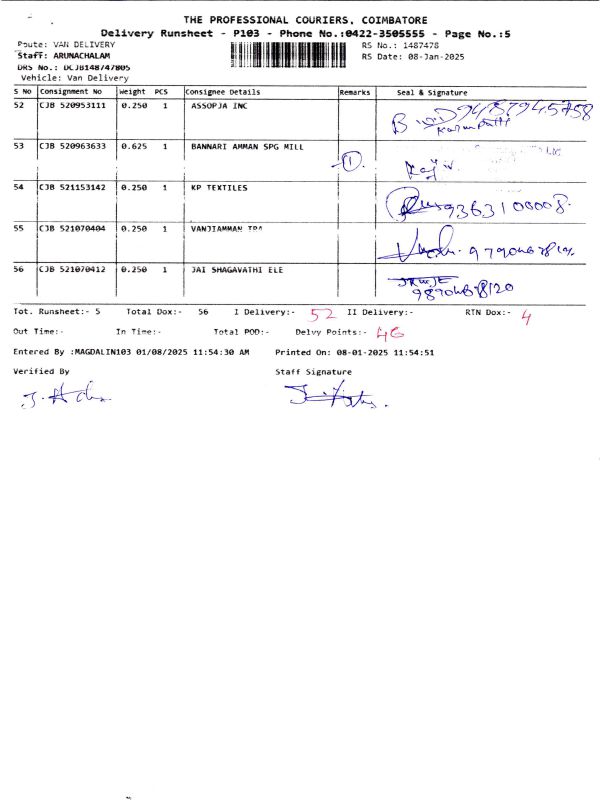 THE PROFESSIONAL COURIERS, COIMBATORE
Delivery Runsheet - P103 - Phone No.:0422-3505555 - Page No.:5
Route: VAN DELIVERY
RS No.: 1487478
Staff: ARUNACHALAM
RS Date: 08-Jan-2025
DRS No.: DCJB148747805
Vehicle: Van Delivery
S No Consignment No Weight PCS Consignee Details Remarks Seal & Signature
52 CJB 520953111 0.250 1 ASSOPJA INC
53 CJB 520963633 0.625 1 BANNARI AMMAN SPG MILL
1
54 CJB 521153142 0.250 1 KP TEXTILES
9363100008.
55 CJB 521070404 0.250 1 VANJIAMMAN TRA
56 CJB 521070412 0.250 1 JAI SHAGAVATHI ELE
Tot. Runsheet:- 5 Total Dox:- 56 I Delivery:- 52 II Delivery:- RTN Dox:- 4
Out Time:- In Time:- Total POD:- Delvy Points:- 46
Entered By :MAGDALIN103 01/08/2025 11:54:30 AM Printed On: 08-01-2025 11:54:51
Verified By Staff Signature